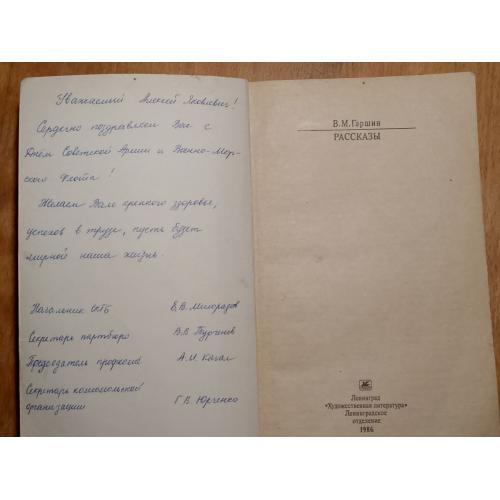 Уважаемый Алексей Яковлевич!
Сердечно поздравляем Вас с
Днём Советской Армии и Военно-Мор-
ского Флота!
Желаем Вам крепкого здоровья,
успехов в труде, пусть будет
мирной наша жизнь.
Начальник
Е.В. Милорадов
Секретарь партбюро
В.В. Турчинов
Председатель профкома
А.И. Каган
Секретарь комсомольской
организации
Г.В. Юрченко
В.М.Гаршин
РАССКАЗЫ
Ленинград
«Художественная литература»
Ленинградское
отделение
1986